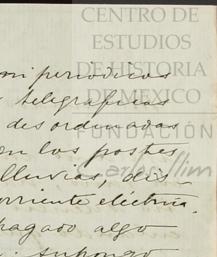 CENTRO DE
ESTUDIOS
DE HISTORIA
DE MÉXICO
FUNDACIÓN
Carlos Slim
mi periodicos
telegraficas
desordenadas
on los postes
lluvias, des-
orriente eléctrica.
pagado algo
supongo